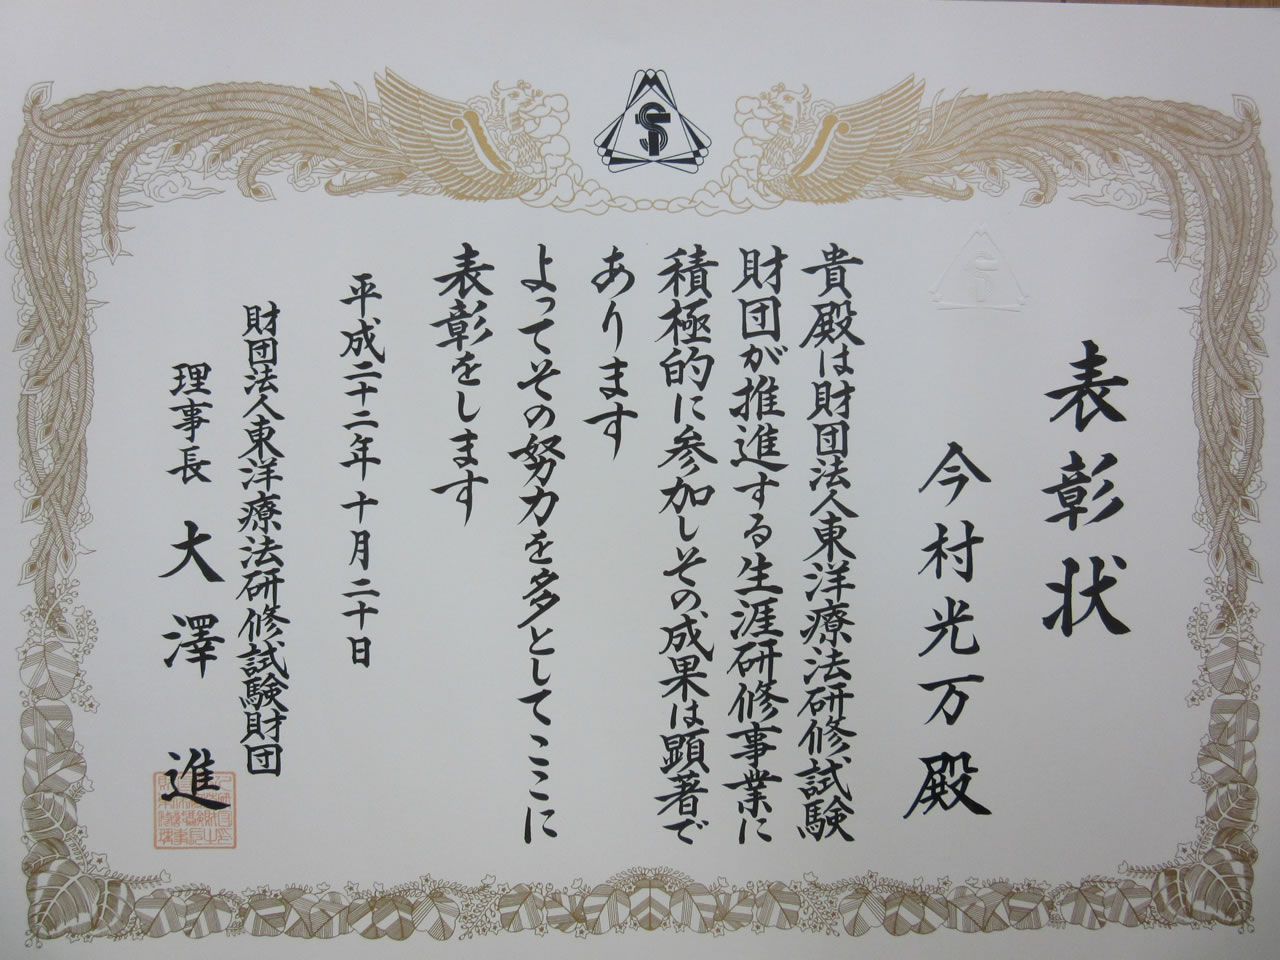 表彰状
今村光万殿
貴殿は財団法人東洋療法研修試験
財団が推進する生涯研修事業に
積極的に参加しその成果は顕著で
あります
よってその努力を多としてここに
表彰をします
平成二十二年十月二十日
財団法人東洋療法研修試験財団
理事長 大澤 進